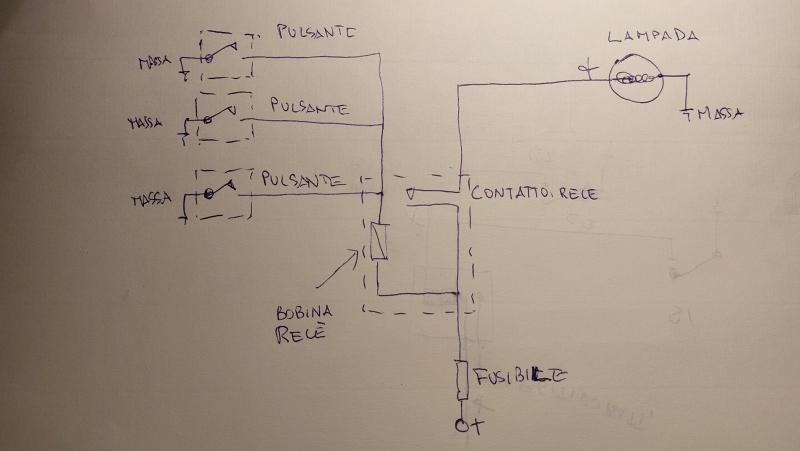 PULSANTE
MASSA
LAMPADA
+
PULSANTE
MASSA
MASSA
PULSANTE
MASSA
CONTATTO RELE
BOBINA
RELÈ
FUSIBILE
+